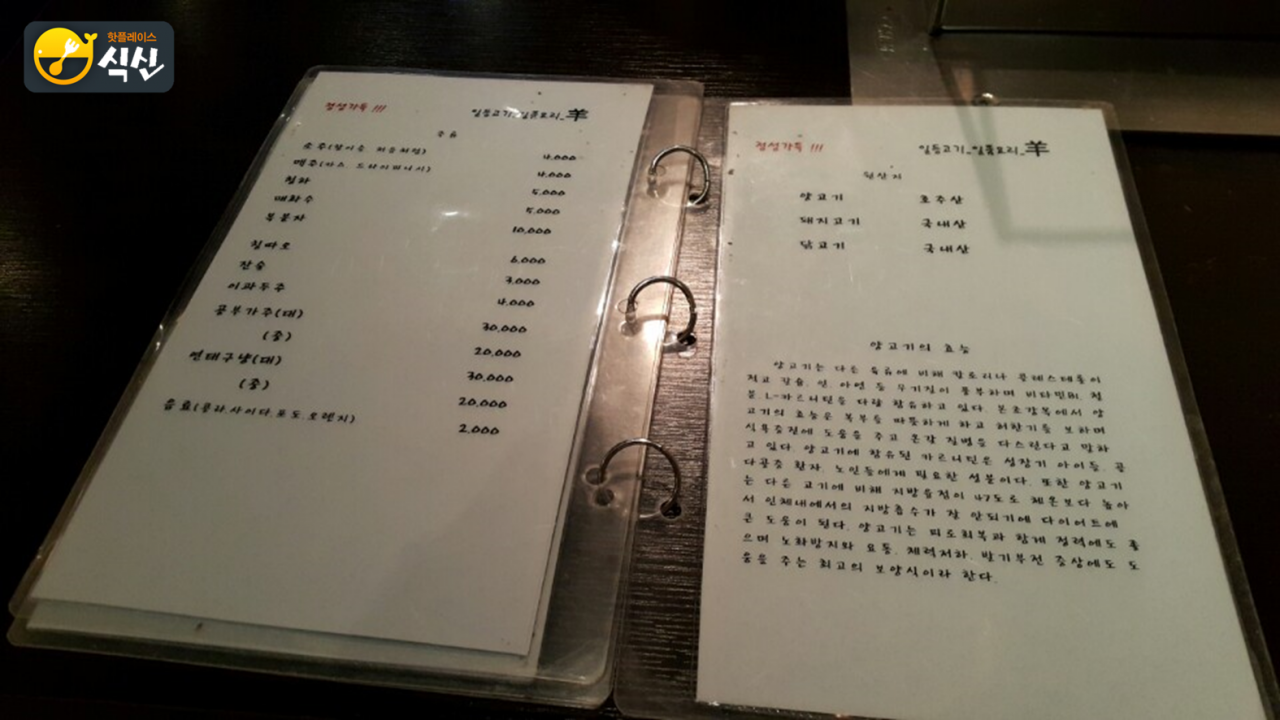 핫플레이스
식신
정성가득 !!!
일등고기_일품요리_羊
주류
소주(참이슬. 처음처럼) 4,000
맥주(카스. 드라이피니시) 4,000
청하 5,000
매화수 5,000
복분자 10,000
칭따오 6,000
잔술 3,000
이과두주 4,000
공부가주(대) 30,000
(중) 20,000
연태구냥(대) 30,000
(중) 20,000
음료(콜라.사이다.포도.오렌지) 2,000
정성가득 !!!
일등고기_일품요리_羊
원산지
양고기 호주산
돼지고기 국내산
닭고기 국내산
양고기의 효능
양고기는 다른 육류에 비해 칼로리나 콜레스테롤이
적고 칼슘. 인. 아연 등 무기질이 풍부하며 비타민B1. 철
분. L-카르니틴을 다량 함유하고 있다. 본초강목에서 양
고기의 효능은 복부를 따뜻하게 하고 허한기를 보하며
식욕증진에 도움을 주고 온갖 질병을 다스린다고 말하
고 있다. 양고기에 함유된 카르니틴은 성장기 아이들. 골
다공증 환자. 노인들에게 필요한 성분이다. 또한 양고기
는 다른 고기에 비해 지방융점이 47도로 체온보다 높아
서 인체내에서의 지방흡수가 잘 안되기에 다이어트에
큰 도움이 된다. 양고기는 피로회복과 함께 정력에도 좋
으며 노화방지와 요통. 체력저하. 발기부전 증상에도 도
움을 주는 최고의 보양식이라 한다.